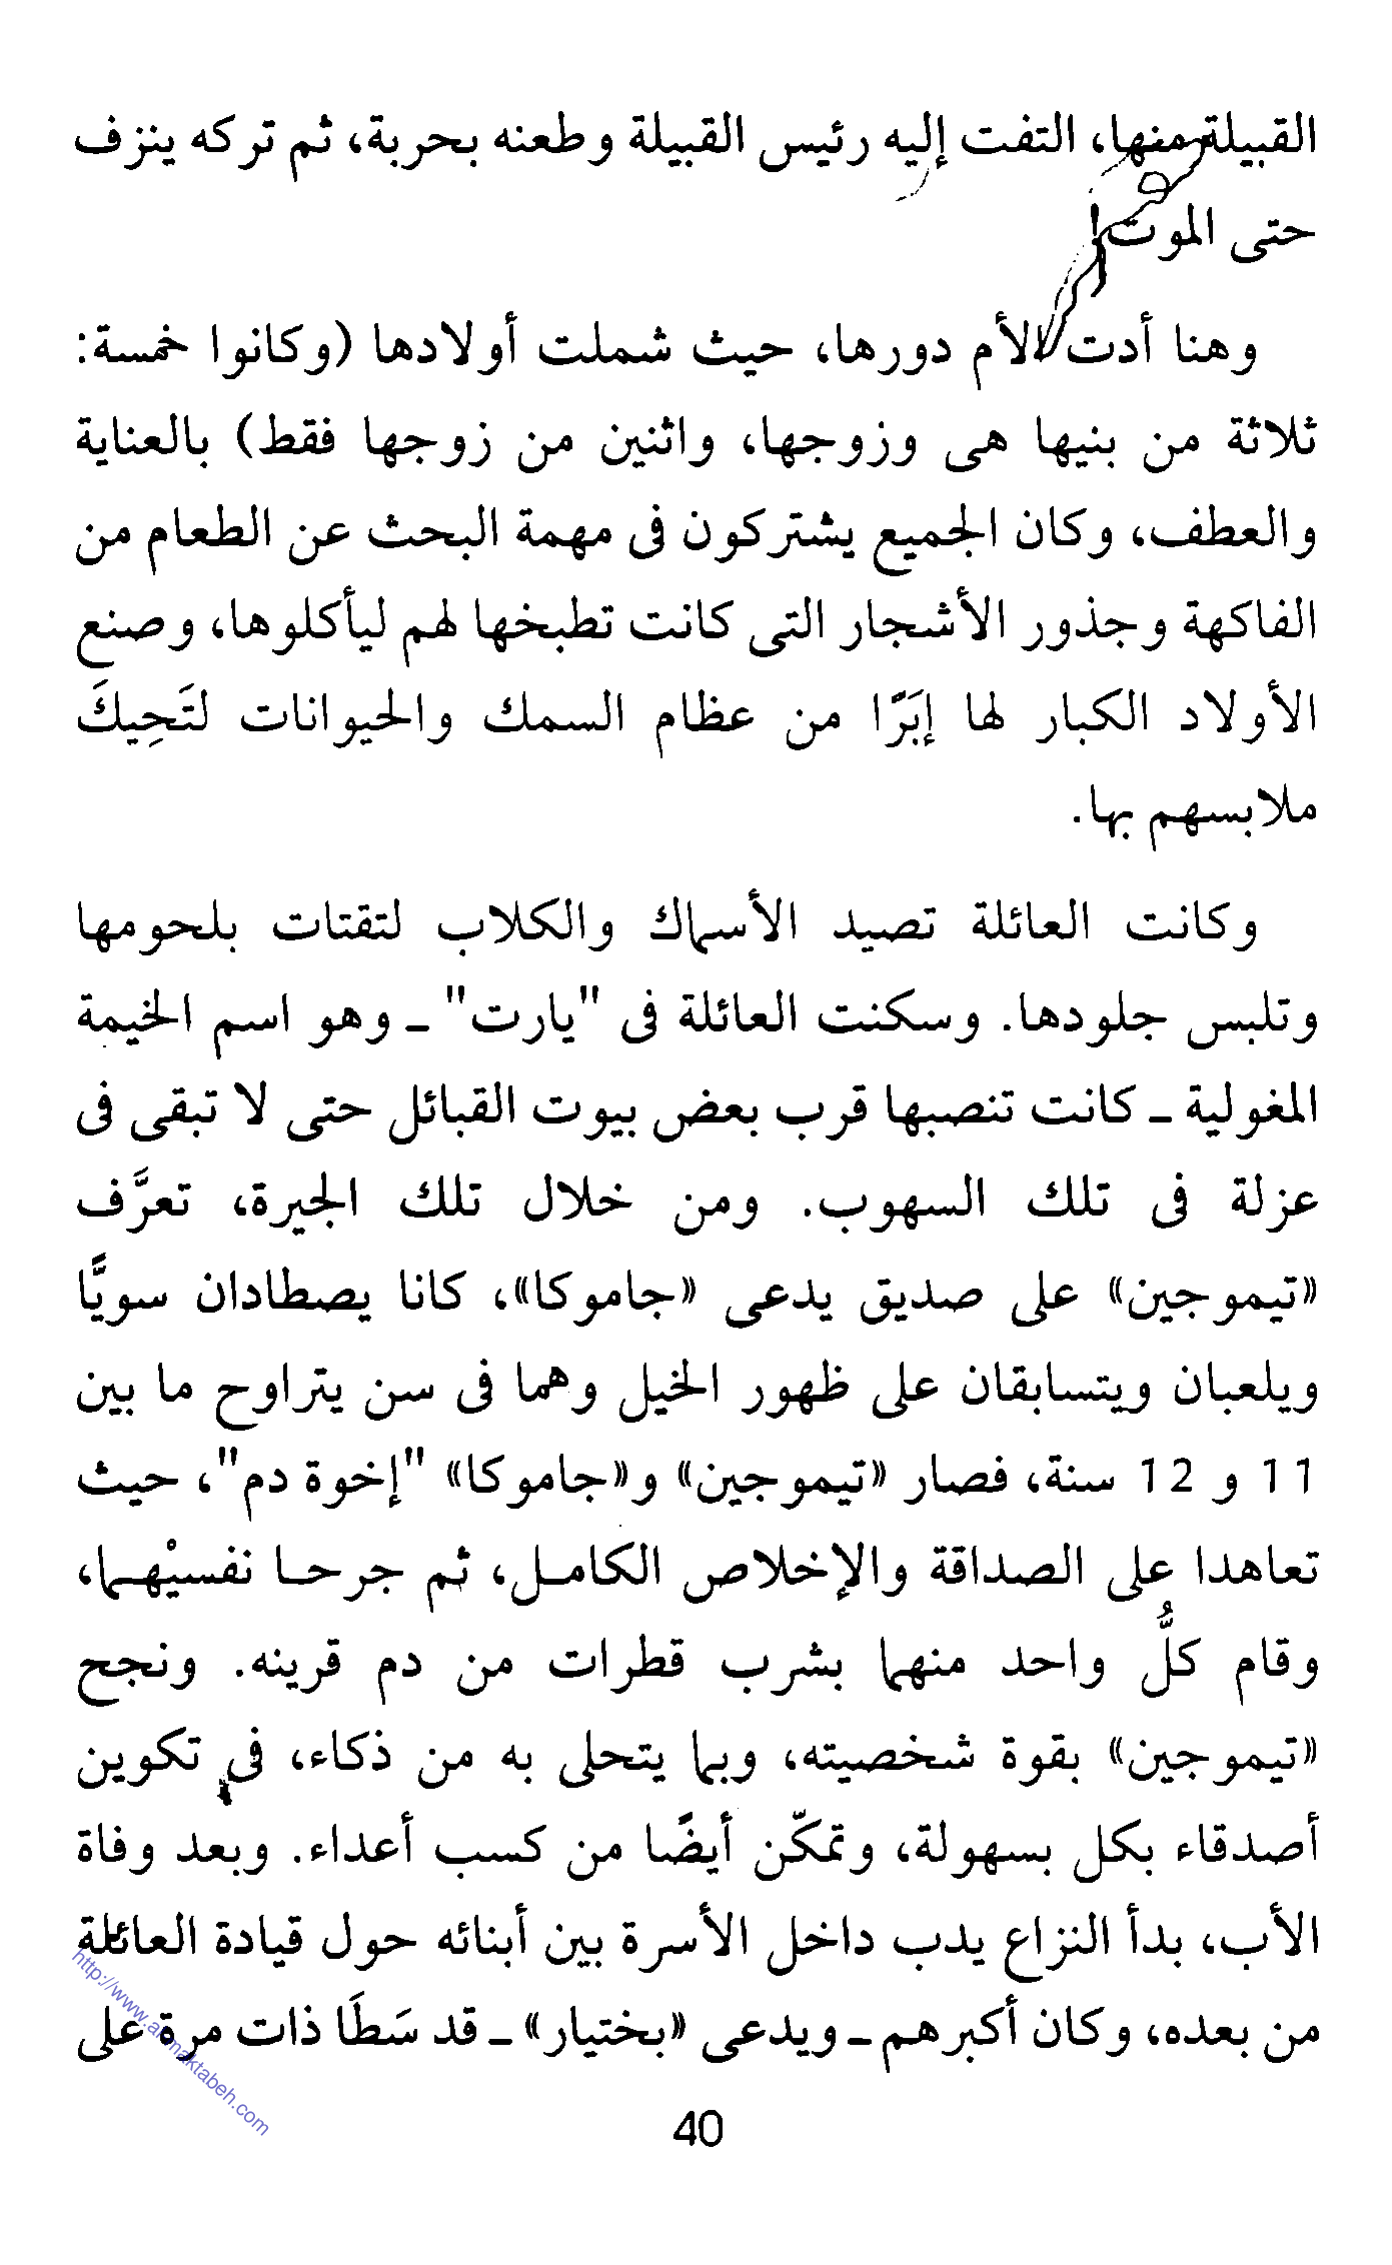 القبيلة منها، التفت إليه رئيس القبيلة وطعنه بحربة، ثم تركه ينزف
حتى الموت!
وهنا أدت الأم دورها، حيث شملت أولادها (وكانوا خمسة:
ثلاثة من بنيها هى وزوجها، واثنين من زوجها فقط) بالعناية
والعطف، وكان الجميع يشتركون فى مهمة البحث عن الطعام من
الفاكهة وجذور الأشجار التى كانت تطبخها لهم ليأكلوها، وصنع
الأولاد الكبار لها إبَرًا من عظام السمك والحيوانات لتَحِيكَ
ملابسهم بها.
وكانت العائلة تصيد الأسماك والكلاب لتقتات بلحومها
وتلبس جلودها. وسكنت العائلة فى "يارت" ـ وهو اسم الخيمة
المغولية ـ كانت تنصبها قرب بعض بيوت القبائل حتى لا تبقى فى
عزلة فى تلك السهوب. ومن خلال تلك الجيرة، تعرَّف
«تيموجين» على صديق يدعى «جاموكا»، كانا يصطادان سويًّا
ويلعبان ويتسابقان على ظهور الخيل وهما فى سن يتراوح ما بين
11 و 12 سنة، فصار «تيموجين» و«جاموكا» "إخوة دم"، حيث
تعاهدا على الصداقة والإخلاص الكامـل، ثم جرحـا نفسيْهـما،
وقام كلُّ واحد منهما بشرب قطرات من دم قرينه. ونجح
«تيموجين» بقوة شخصيته، وبما يتحلى به من ذكاء، فى تكوين
أصدقاء بكل بسهولة، وتمكّن أيضًا من كسب أعداء. وبعد وفاة
الأب، بدأ النزاع يدب داخل الأسرة بين أبنائه حول قيادة العائلة
من بعده، وكان أكبرهم ـ ويدعى «بختيار» ـ قد سَطَا ذات مرة على
40